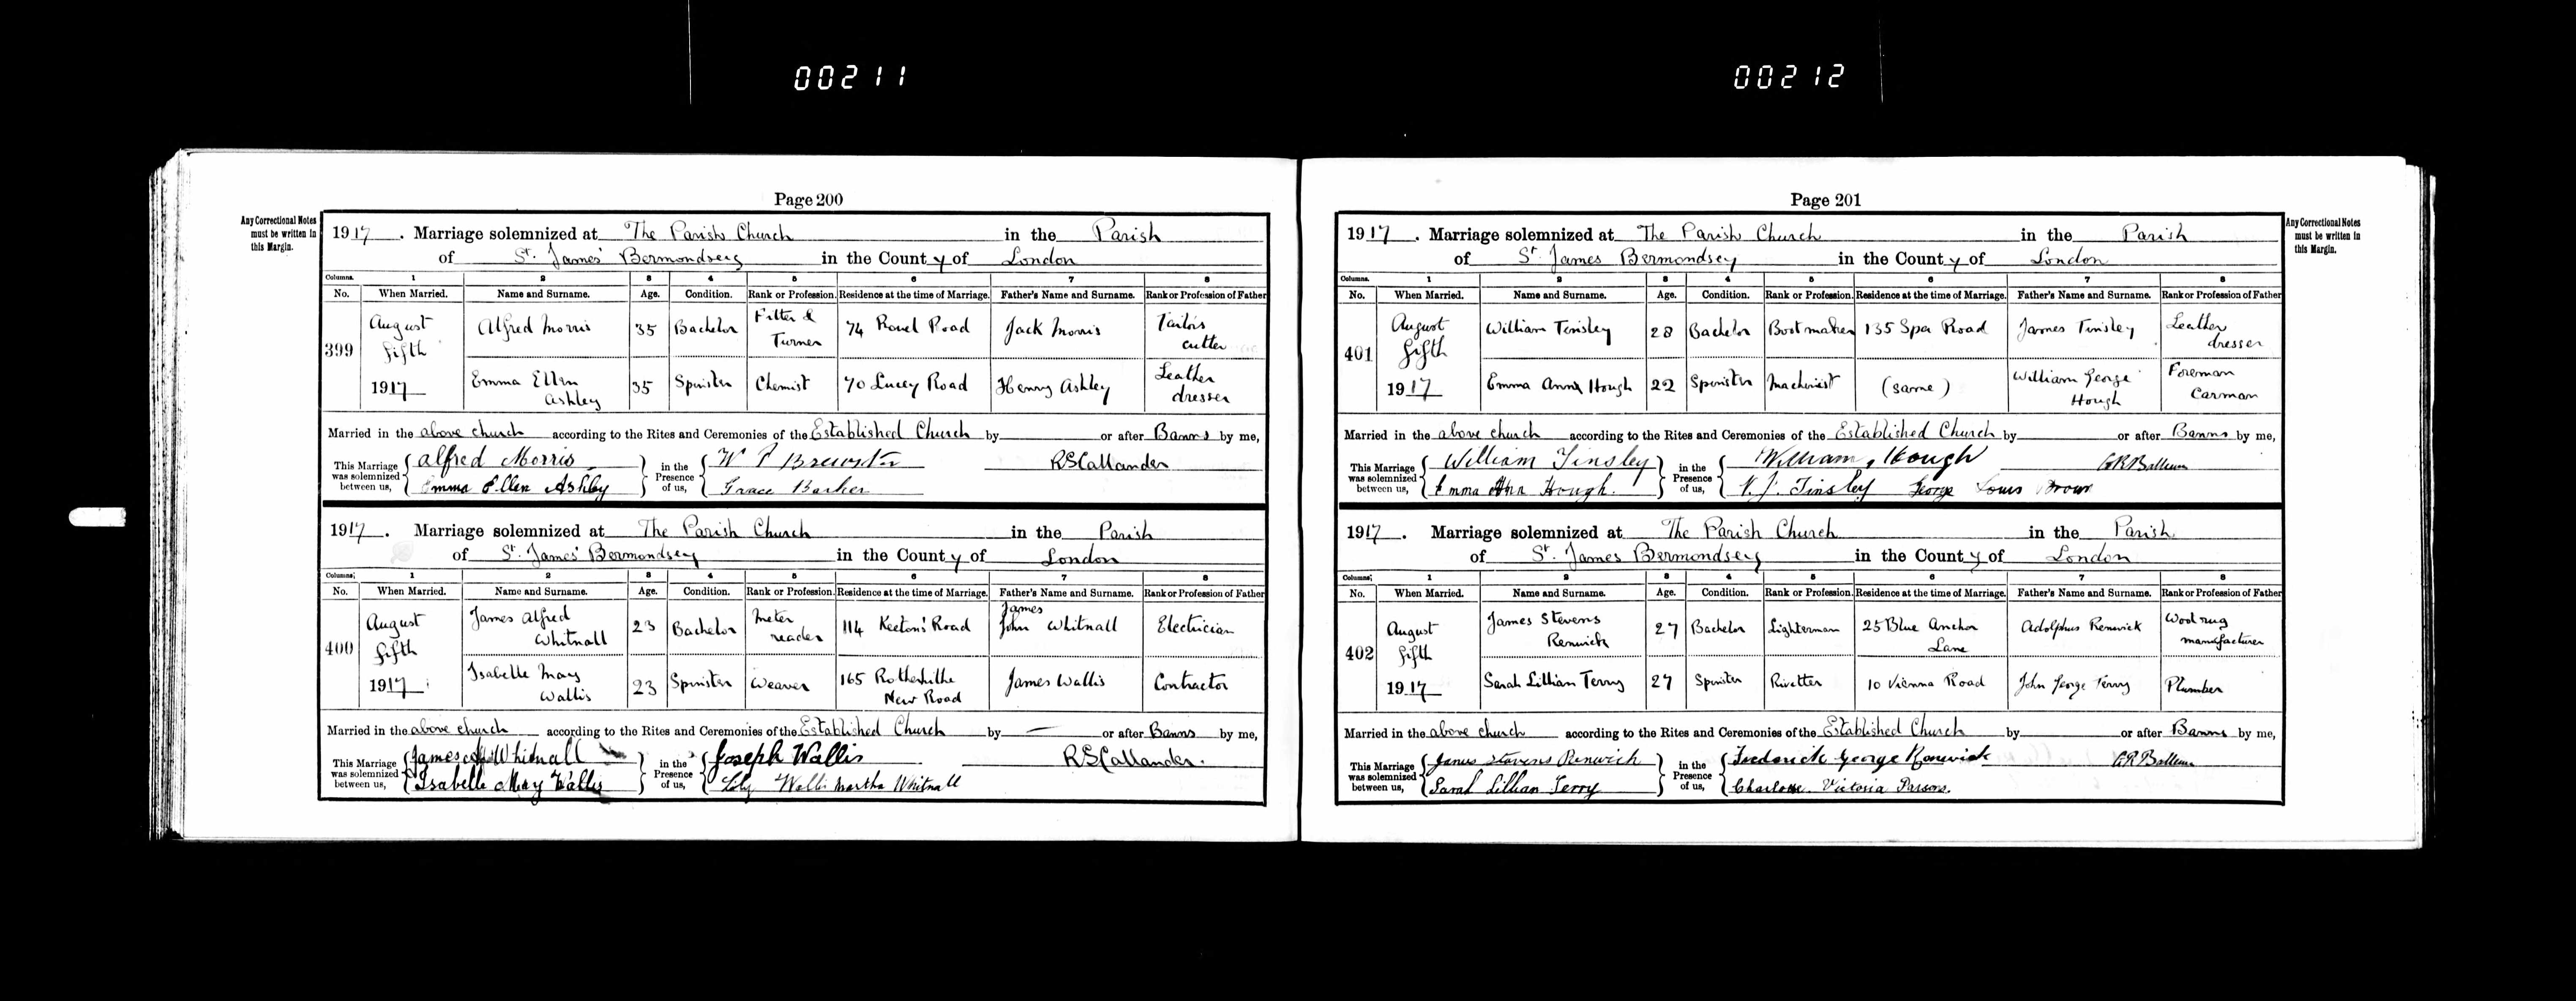 00211
00212
Page 200
Any Correctional Notes
must be written in
this Margin.
1917. Marriage solemnized at The Parish Church in the Parish
of St. James' Bermondsey in the County of London
Columns. 1 2 3 4 5 6 7 8
No. When Married. Name and Surname. Age. Condition. Rank or Profession. Residence at the time of Marriage. Father's Name and Surname. Rank or Profession of Father
399 August fifth 1917
Alfred Morris 35 Bachelor Fitter & Turner 74 Rouel Road Jack Morris Tailors cutter
Emma Ellen Ashley 35 Spinster Chemist 70 Lucey Road Henry Ashley Leather dresser
Married in the above church according to the Rites and Ceremonies of the Established Church by or after Banns by me,
This Marriage was solemnized between us, Alfred Morris in the Presence of us, W Brewster RSCallander
Emma Ellen Ashley Grace Barker
1917. Marriage solemnized at The Parish Church in the Parish
of St. James' Bermondsey in the County of London
Columns; 1 2 3 4 5 6 7 8
No. When Married. Name and Surname. Age. Condition. Rank or Profession. Residence at the time of Marriage. Father's Name and Surname. Rank or Profession of Father
400 August fifth 1917
James Alfred Whitnall 23 Bachelor Meter reader 114 Keetons' Road James John Whitnall Electrician
Isabelle May Wallis 23 Spinster Weaver 165 Rotherhithe New Road James Wallis Contractor
Married in the above church according to the Rites and Ceremonies of the Established Church by — or after Banns by me,
This Marriage was solemnized between us, James Whitnall in the Presence of us, Joseph Wallis RSCallander.
Isabelle May Wallis Lily Wallis Martha Whitnall
Page 201
Any Correctional Notes
must be written in
this Margin.
1917. Marriage solemnized at The Parish Church in the Parish
of St. James Bermondsey in the County of London
Columns. 1 2 3 4 5 6 7 8
No. When Married. Name and Surname. Age. Condition. Rank or Profession. Residence at the time of Marriage. Father's Name and Surname. Rank or Profession of Father
401 August fifth 1917
William Tinsley 28 Bachelor Bootmaker 135 Spa Road James Tinsley Leather dresser
Emma Anna Hough 22 Spinster Machinist (same) William George Hough Foreman Carman
Married in the above church according to the Rites and Ceremonies of the Established Church by or after Banns by me,
This Marriage was solemnized between us, William Tinsley in the Presence of us, William Hough
Emma Ann Hough. V. J. Tinsley George Louis Brown
1917. Marriage solemnized at The Parish Church in the Parish
of St. James Bermondsey in the County of London
Columns; 1 2 3 4 5 6 7 8
No. When Married. Name and Surname. Age. Condition. Rank or Profession. Residence at the time of Marriage. Father's Name and Surname. Rank or Profession of Father
402 August fifth 1917
James Stevens Renwick 27 Bachelor Lighterman 25 Blue Anchor Lane Adolphus Renwick Wool rug manufacturer
Sarah Lillian Terry 27 Spinster Rivetter 10 Vienna Road John George Terry Plumber
Married in the above church according to the Rites and Ceremonies of the Established Church by or after Banns by me,
This Marriage was solemnized between us, James Stevens Renwick in the Presence of us, Frederick George Renwick
Sarah Lillian Terry Charlotte Victoria Parsons.